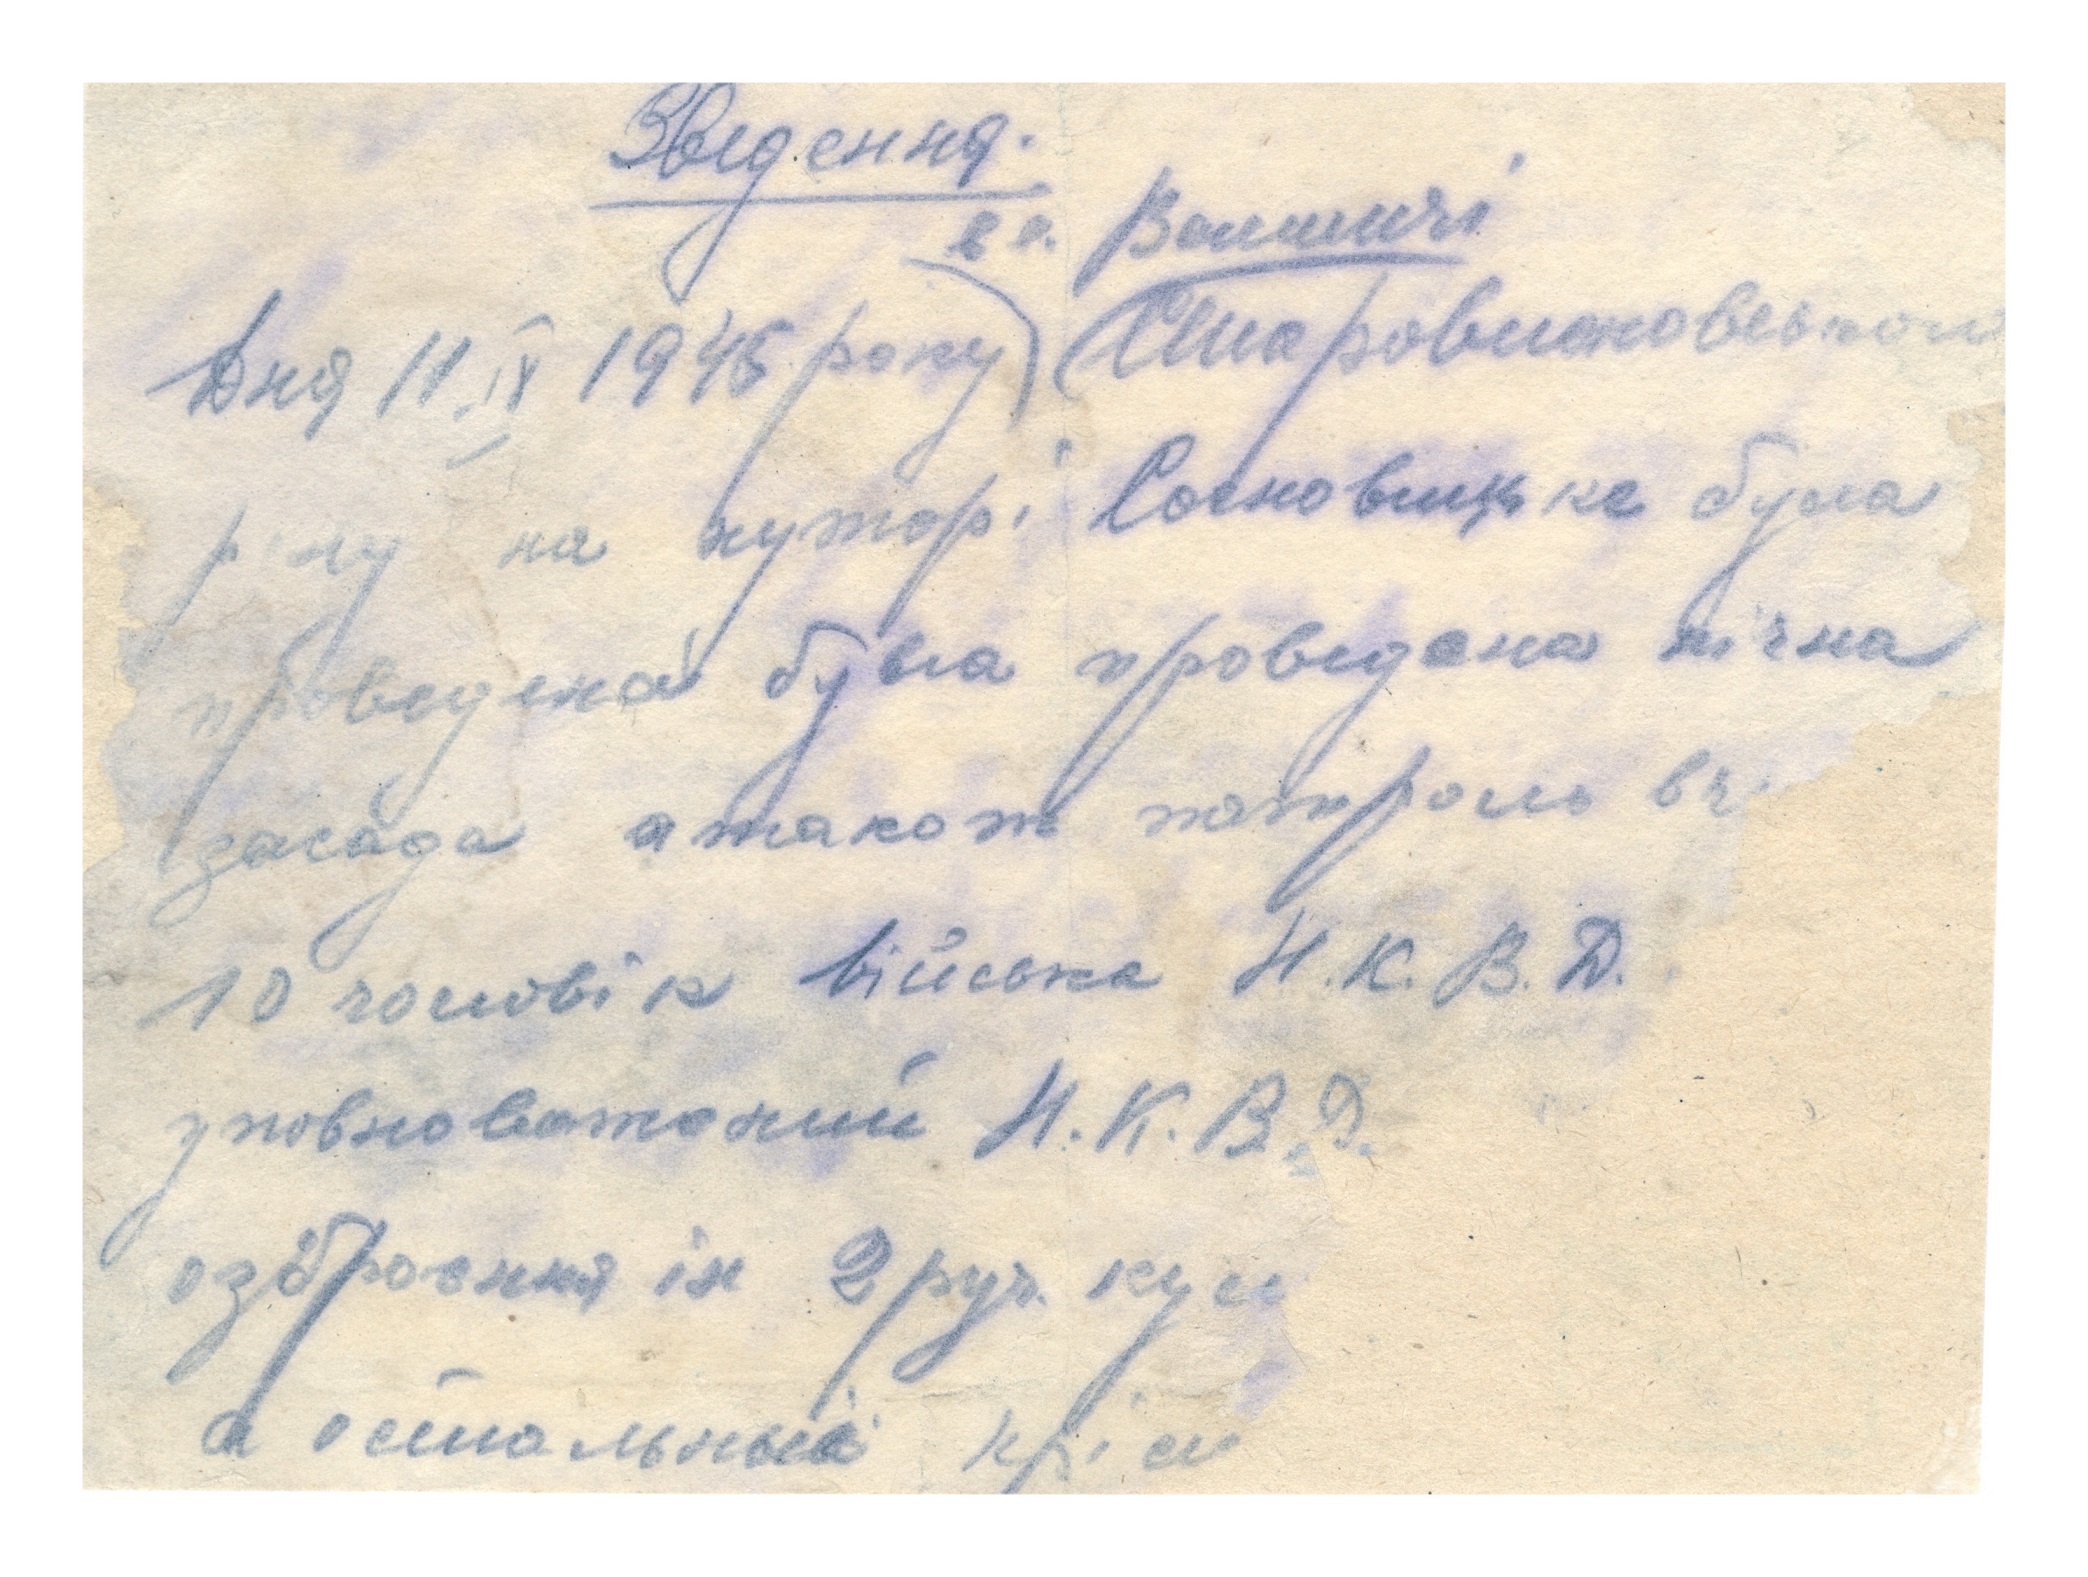 Зведення.
в с. Волиці
Дня 11.ІХ 1945 року Старовижовского
р-ну на хуторі Сосновицьке була
проведена була проведена нічна
засада а також патроль вч
10 чоловік війська Н.К.В.Д.
уповноважений Н.К.В.Д.
озброєння їх 2 руч. кул
а остальні кріс